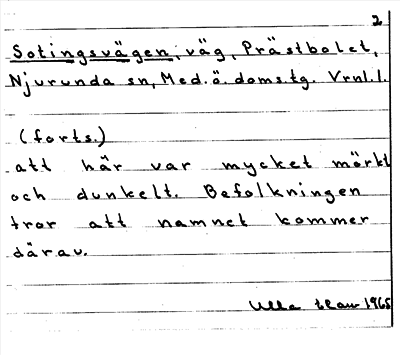 2
Sotingsvägen, väg, Prästbolet,
Njurunda sn, Med. ö. doms.tg. Vrnl.l.
(forts.)
att här var mycket mörkt
och dunkelt. Befolkningen
tror att namnet kommer
därav.
Ulla 1965